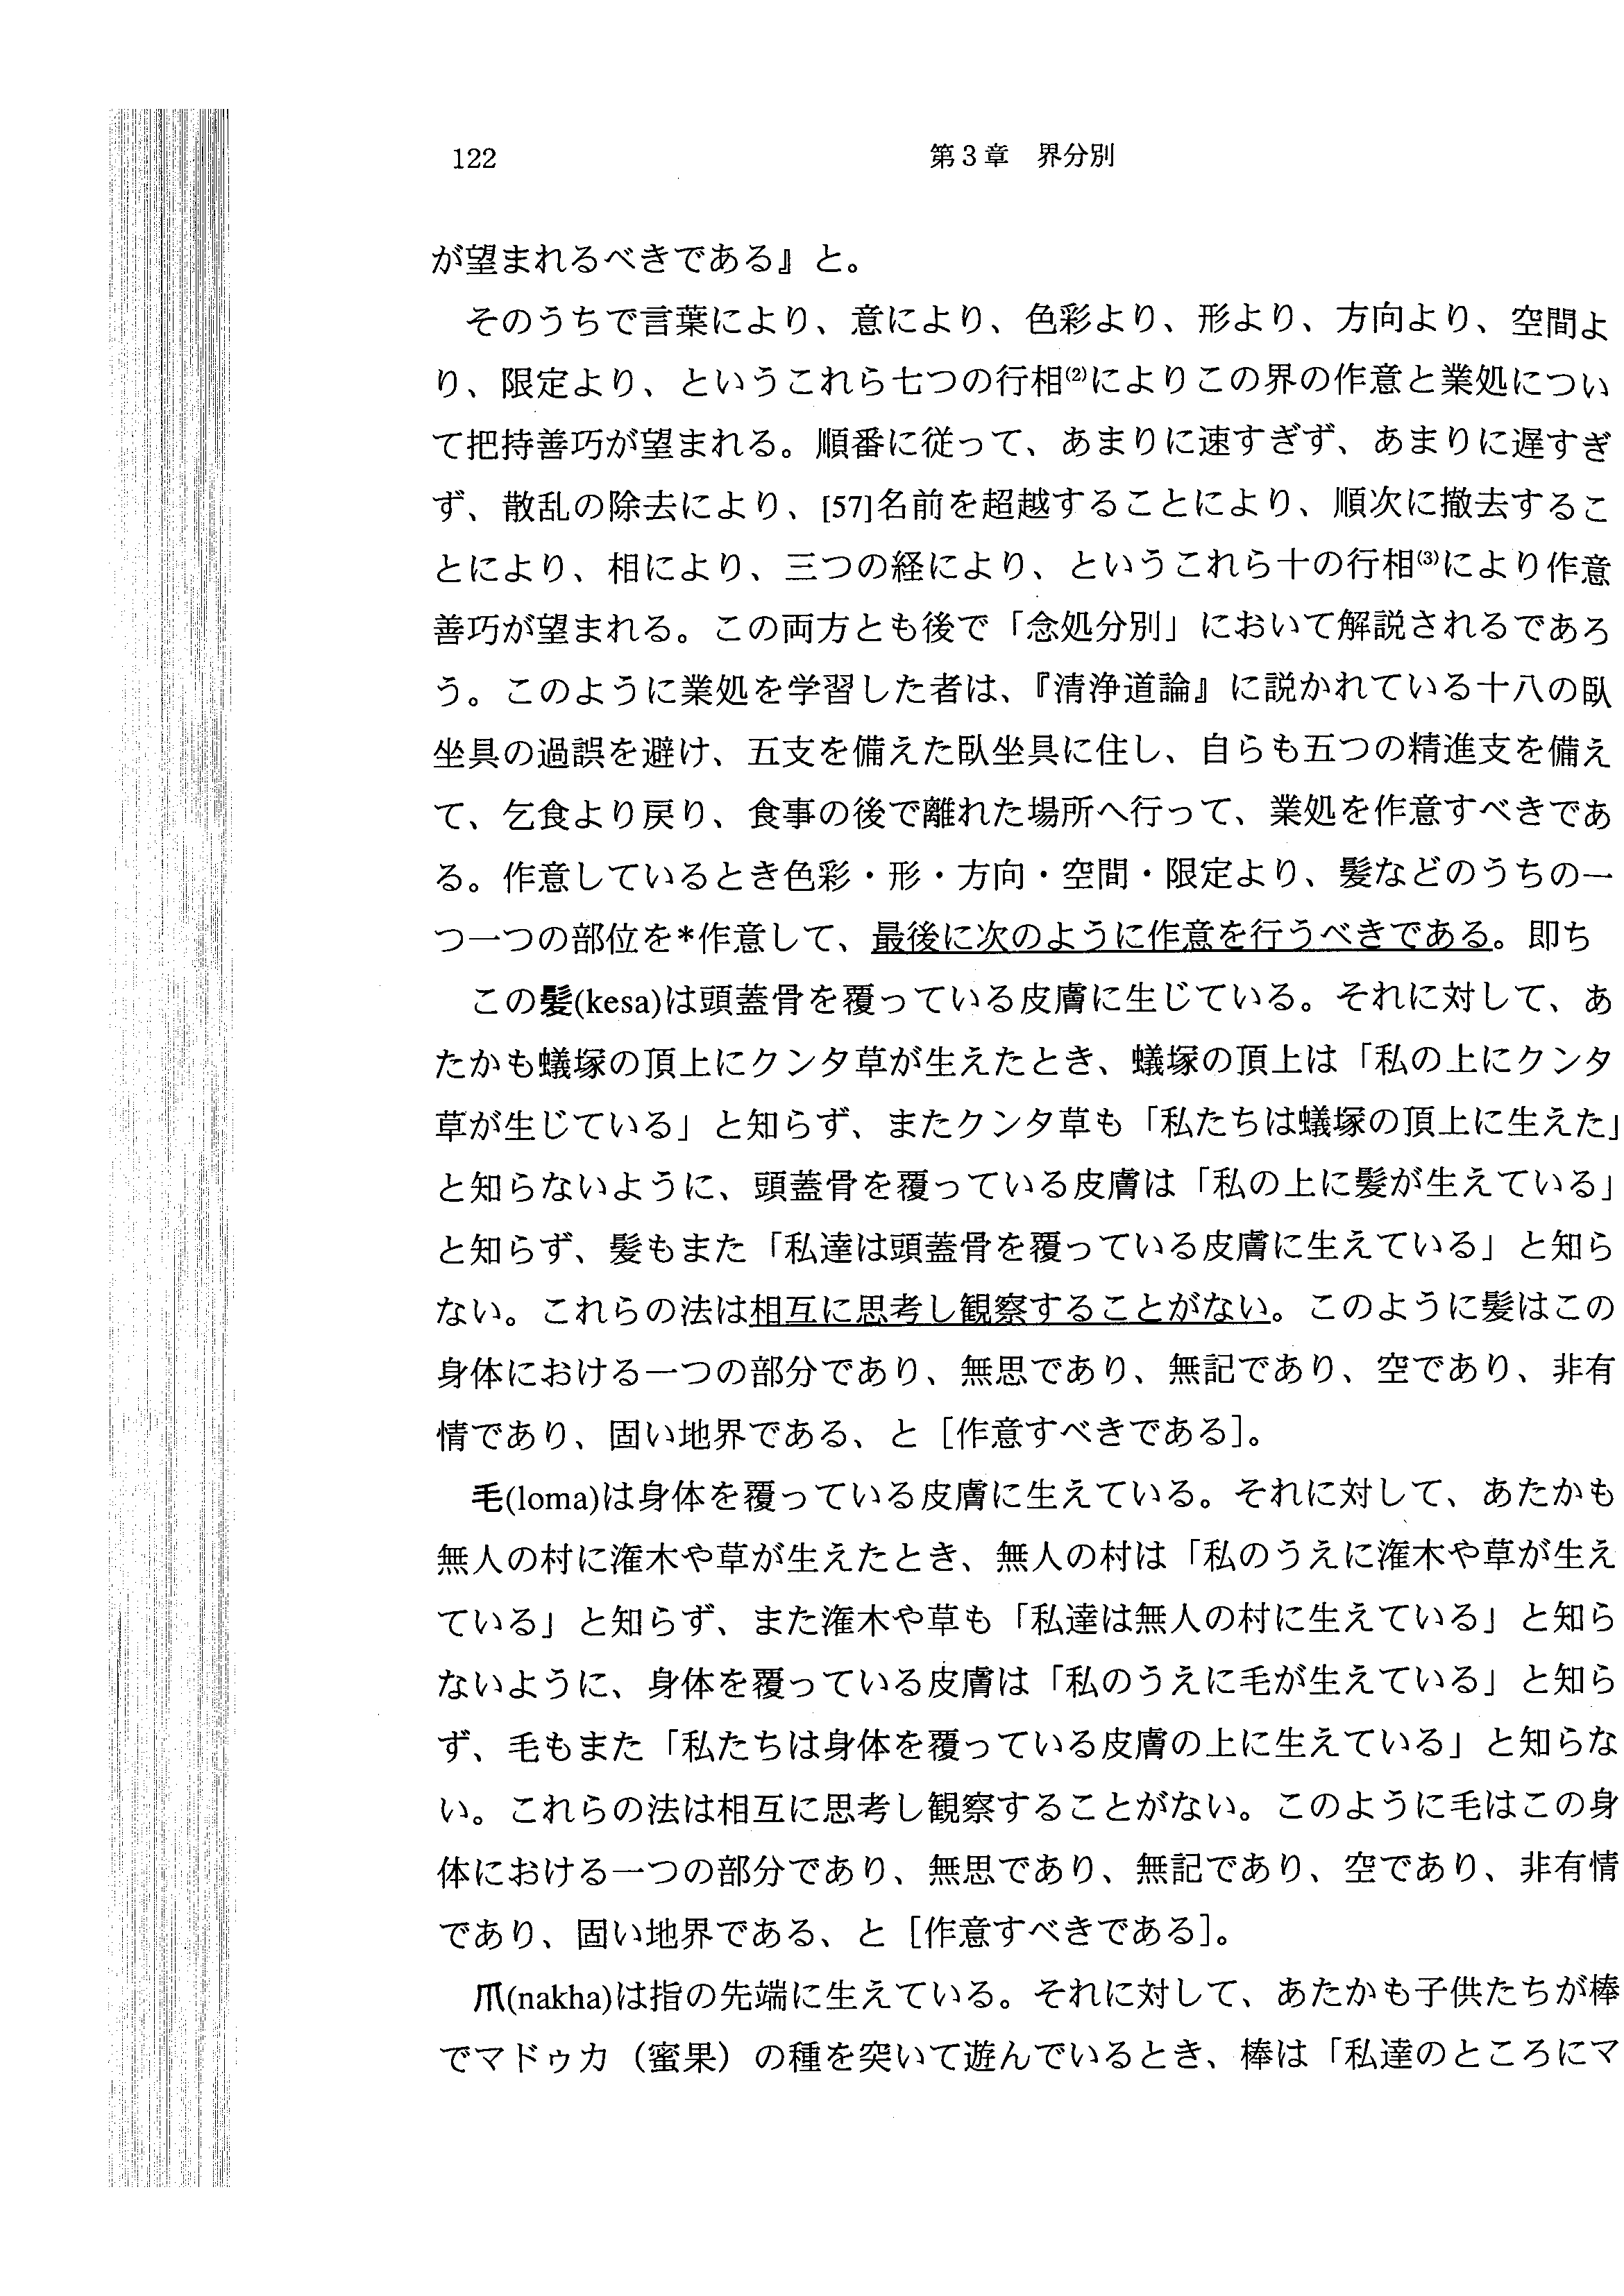 122
第3章　界分別
が望まれるべきである』と。
そのうちで言葉により、意により、色彩より、形より、方向より、空間よ
り、限定より、というこれら七つの行相(2)によりこの界の作意と業処につい
て把持善巧が望まれる。順番に従って、あまりに速すぎず、あまりに遅すぎ
ず、散乱の除去により、[57]名前を超越することにより、順次に撤去するこ
とにより、相により、三つの経により、というこれら十の行相(3)により作意
善巧が望まれる。この両方とも後で「念処分別」において解説されるであろ
う。このように業処を学習した者は、『清浄道論』に説かれている十八の臥
坐具の過誤を避け、五支を備えた臥坐具に住し、自らも五つの精進支を備え
て、乞食より戻り、食事の後で離れた場所へ行って、業処を作意すべきであ
る。作意しているとき色彩・形・方向・空間・限定より、髪などのうちの一
つ一つの部位を*作意して、最後に次のように作意を行うべきである。即ち
この髪(kesa)は頭蓋骨を覆っている皮膚に生じている。それに対して、あ
たかも蟻塚の頂上にクンタ草が生えたとき、蟻塚の頂上は「私の上にクンタ
草が生じている」と知らず、またクンタ草も「私たちは蟻塚の頂上に生えた」
と知らないように、頭蓋骨を覆っている皮膚は「私の上に髪が生えている」
と知らず、髪もまた「私達は頭蓋骨を覆っている皮膚に生えている」と知ら
ない。これらの法は相互に思考し観察することがない。このように髪はこの
身体における一つの部分であり、無思であり、無記であり、空であり、非有
情であり、固い地界である、と［作意すべきである］。
毛(loma)は身体を覆っている皮膚に生えている。それに対して、あたかも
無人の村に潅木や草が生えたとき、無人の村は「私のうえに潅木や草が生え
ている」と知らず、また潅木や草も「私達は無人の村に生えている」と知ら
ないように、身体を覆っている皮膚は「私のうえに毛が生えている」と知ら
ず、毛もまた「私たちは身体を覆っている皮膚の上に生えている」と知らな
い。これらの法は相互に思考し観察することがない。このように毛はこの身
体における一つの部分であり、無思であり、無記であり、空であり、非有情
であり、固い地界である、と［作意すべきである］。
爪(nakha)は指の先端に生えている。それに対して、あたかも子供たちが棒
でマドゥカ（蜜果）の種を突いて遊んでいるとき、棒は「私達のところにマ